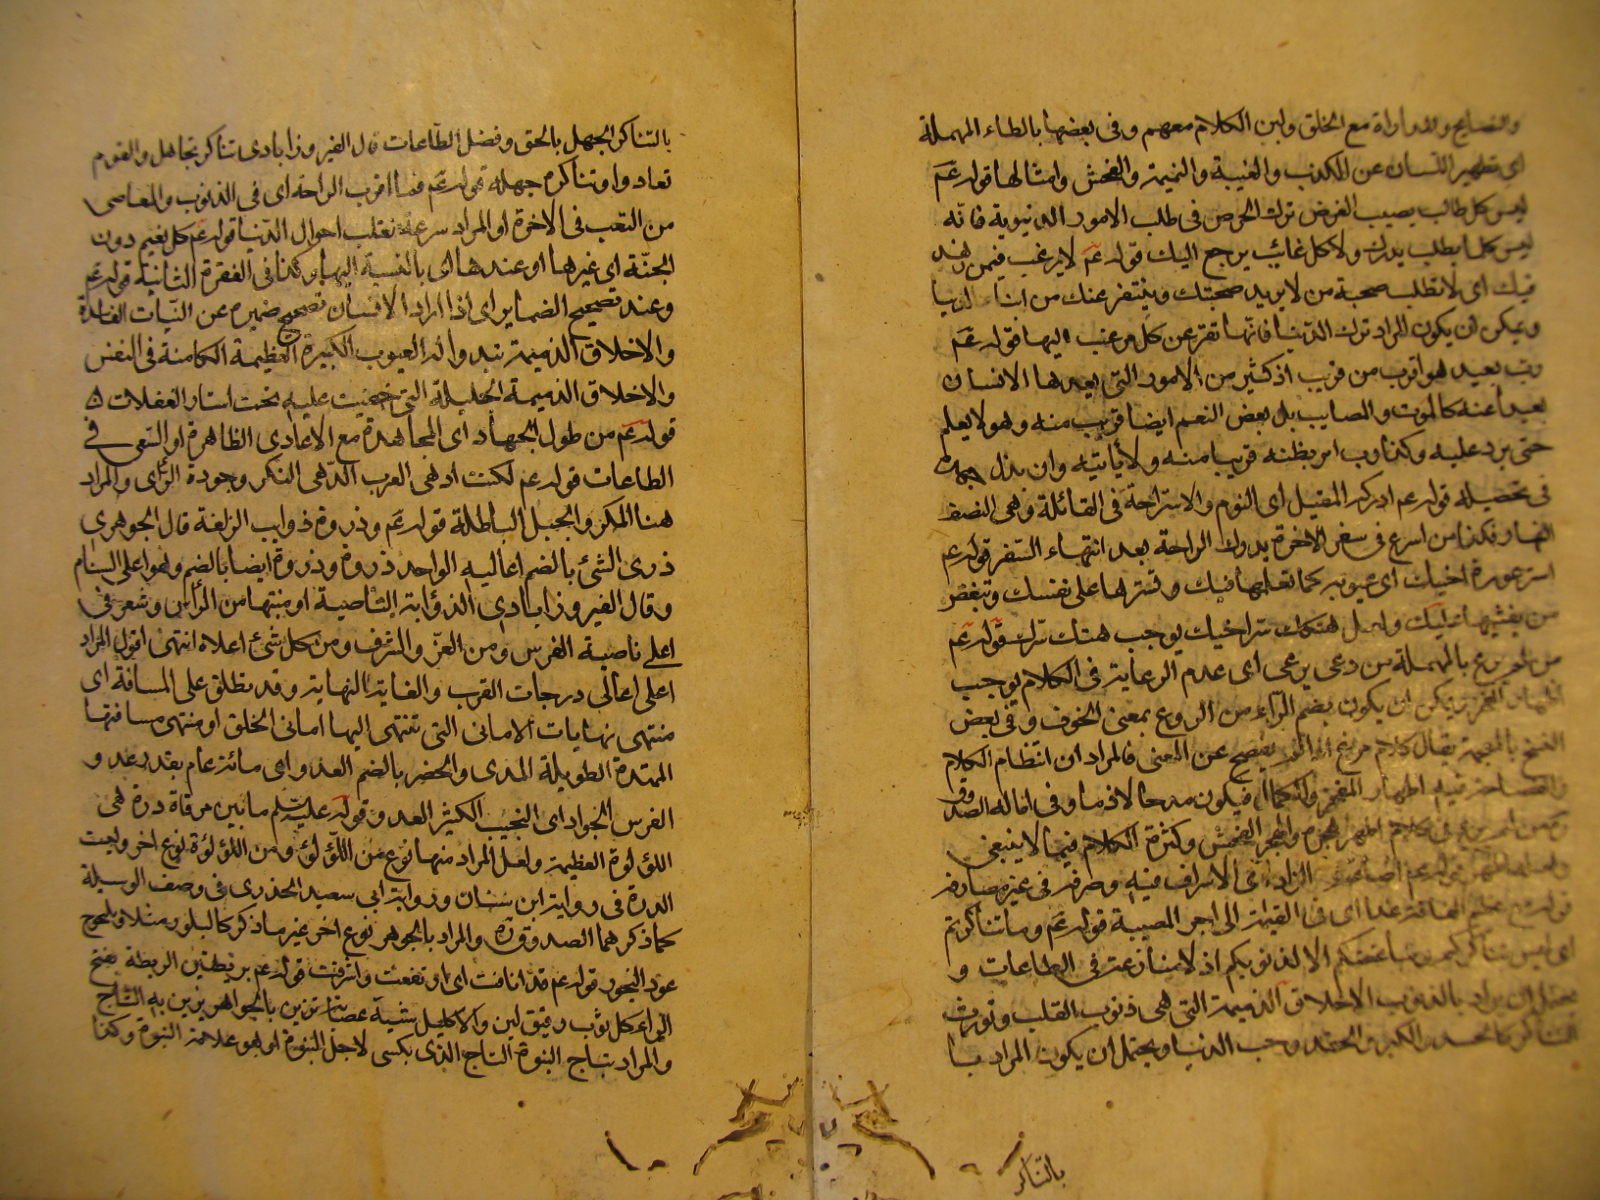 والمداراة مع الخلق ولين الكلام معهم وفى بعضها بالطاء المهملة
اى تطهير اللسان عن الكذب والغيبة والنميمة والفحش وامثالها قوله عم
ليس كل طالب يصيب الغرض ترك الحرص فى طلب الامور الدنيوية فانه
ليس كل ما يطلب يدرك ولا كل غائب يرجع اليك قوله عم لا يرغب فيمن زهد
فيك اى لا تطلب صحبة من لا يريد صحبتك ويتنفر عنك من ابناء الدنيا
ويمكن ان يكون المراد ترك الدنيا فانها تفر عن كل من رغب اليها قوله عم
رب بعيد هو اقرب من قريب اذ كثير من الامور التى يعدها الانسان
بعيدا عنه كالموت والمصايب بل بعض النعم ايضا قريب منه وهو لا يعلم
حتى يرد عليه وكذا رب امر يظنه قريبا منه ولا ياتيه وان بذل جهده
فى تحصيله قوله عم ادرك المقيل اى النوم والاستراحة فى القائلة وهى النصف
النهار فكذا من اسرع فى سفر الاخرة يدرك الراحة بعد انتهاء السفر قوله عم
استر عورة اخيك اى عيوبه كما تعلمها فيك وتسترها على نفسك وتبغض
من يفشيها عليك هتك ستر اخيك يوجب هتك سترك قوله عم
من لم يرع بالمهملة من رعى يرعى اى عدم الرعاية فى الكلام يوجب
اظهار الفخر يمكن ان يكون بضم الراء من الروع بمعنى الخوف وفى بعض
النسخ بالمعجمة يقال كلام يفصح عن المعنى فالمراد ان انتظام الكلام
فيه اظهار الفخر والكمال فيكون مدحا لا ذما وفى امالى الصدوق
ومن لم يرع فى كلامه اظهر هجره والهجر الفحش وكثرة الكلام فيما لا ينبغى
الزاد اى الاسراف فيه وصرفه فى غير مصارفه
غدا اى فى القيمة الى اجر المصيبة قوله عم وما تناكرتم
اى ليس تناكركم الا لذنوبكم اذ لا منازعة فى الطاعات و
يحتمل ان يراد بالذنوب الاخلاق الذميمة التى هى ذنوب القلب وتورث
التناكر كالحسد والكبر والحقد وحب الدنيا ويحتمل ان يكون المراد بها
بالتناكر
بالتناكر الجهل بالحق وفضل الطاعات قال الفيروزابادى تناكر تجاهل والقوم
تعادوا وتناكره جهله قوله عم فما اقرب الراحة اى فى الذنوب والمعاصى
من التعب فى الاخرة او المراد سرعة تقلب احوال الدنيا قوله عم كل نعيم دون
الجنة اى غيرها او عندها اى بالنسبة اليها وكذا فى الفقرة الثانية قوله عم
وعند تصحيح الضماير اى اذا اراد الانسان تصحيح ضميره عن النيات الفاسدة
والاخلاق الذميمة تبدو له العيوب الكبيرة العظيمة الكامنة فى النفس
والاخلاق الذميمة الجليلة التى خفيت عليه تحت استار الغفلات
قوله عم من طول الجهاد اى المجاهدة مع الاعادى الظاهرة او السعى فى
الطاعات قوله عم لكنت ادهى العرب الدهى النكر وجودة الراى والمراد
هنا المكر والحيل الباطلة قوله عم وذروة ذوايب الزلفة قال الجوهرى
ذرى الشئ بالضم اعاليه الواحد ذروة وذروة ايضا بالضم وهو اعلى السنام
وقال الفيروزابادى الذؤابة الناصية او منبتها من الرأس وشعر فى
اعلى ناصية الفرس ومن العز والشرف ومن كل شئ اعلاه انتهى اقول المراد
اعلى اعالى درجات القرب والغاية النهاية وقد يطلق على المسافة اى
منتهى نهايات الامانى التى تنتهى اليها امانى الخلق او منتهى مسافتها
الممتدة الطويلة المدى والحضر بالضم العدو اى مائة عام بقدر عدو
الفرس الجواد اى النجيب الكثير العدو قوله عليه السلم ما بين مرقاة درة هى
اللؤلؤة العظيمة ولعل المراد منها نوع من اللؤلؤ ومن اللؤلؤة نوع اخر وليست
الدرة فى رواية ابن سنان ورواية ابى سعيد الخذرى فى وصف الوسيلة
كما ذكرهما الصدوق ره والمراد بالجوهر نوع اخر غير ما ذكر كالبلور مثلا ويلجوج
عود البخور قوله عم قد انافت اى ارتفعت واشرفت قوله عم بريطتين الريطة بفتح
الراء كل ثوب رقيق لين والاكليل شبه عصابة تزين بالجواهر يزين به التاج
والمراد بتاج النبوة التاج الذى يكسى لاجل النبوة او هو علامة النبوة وكذا